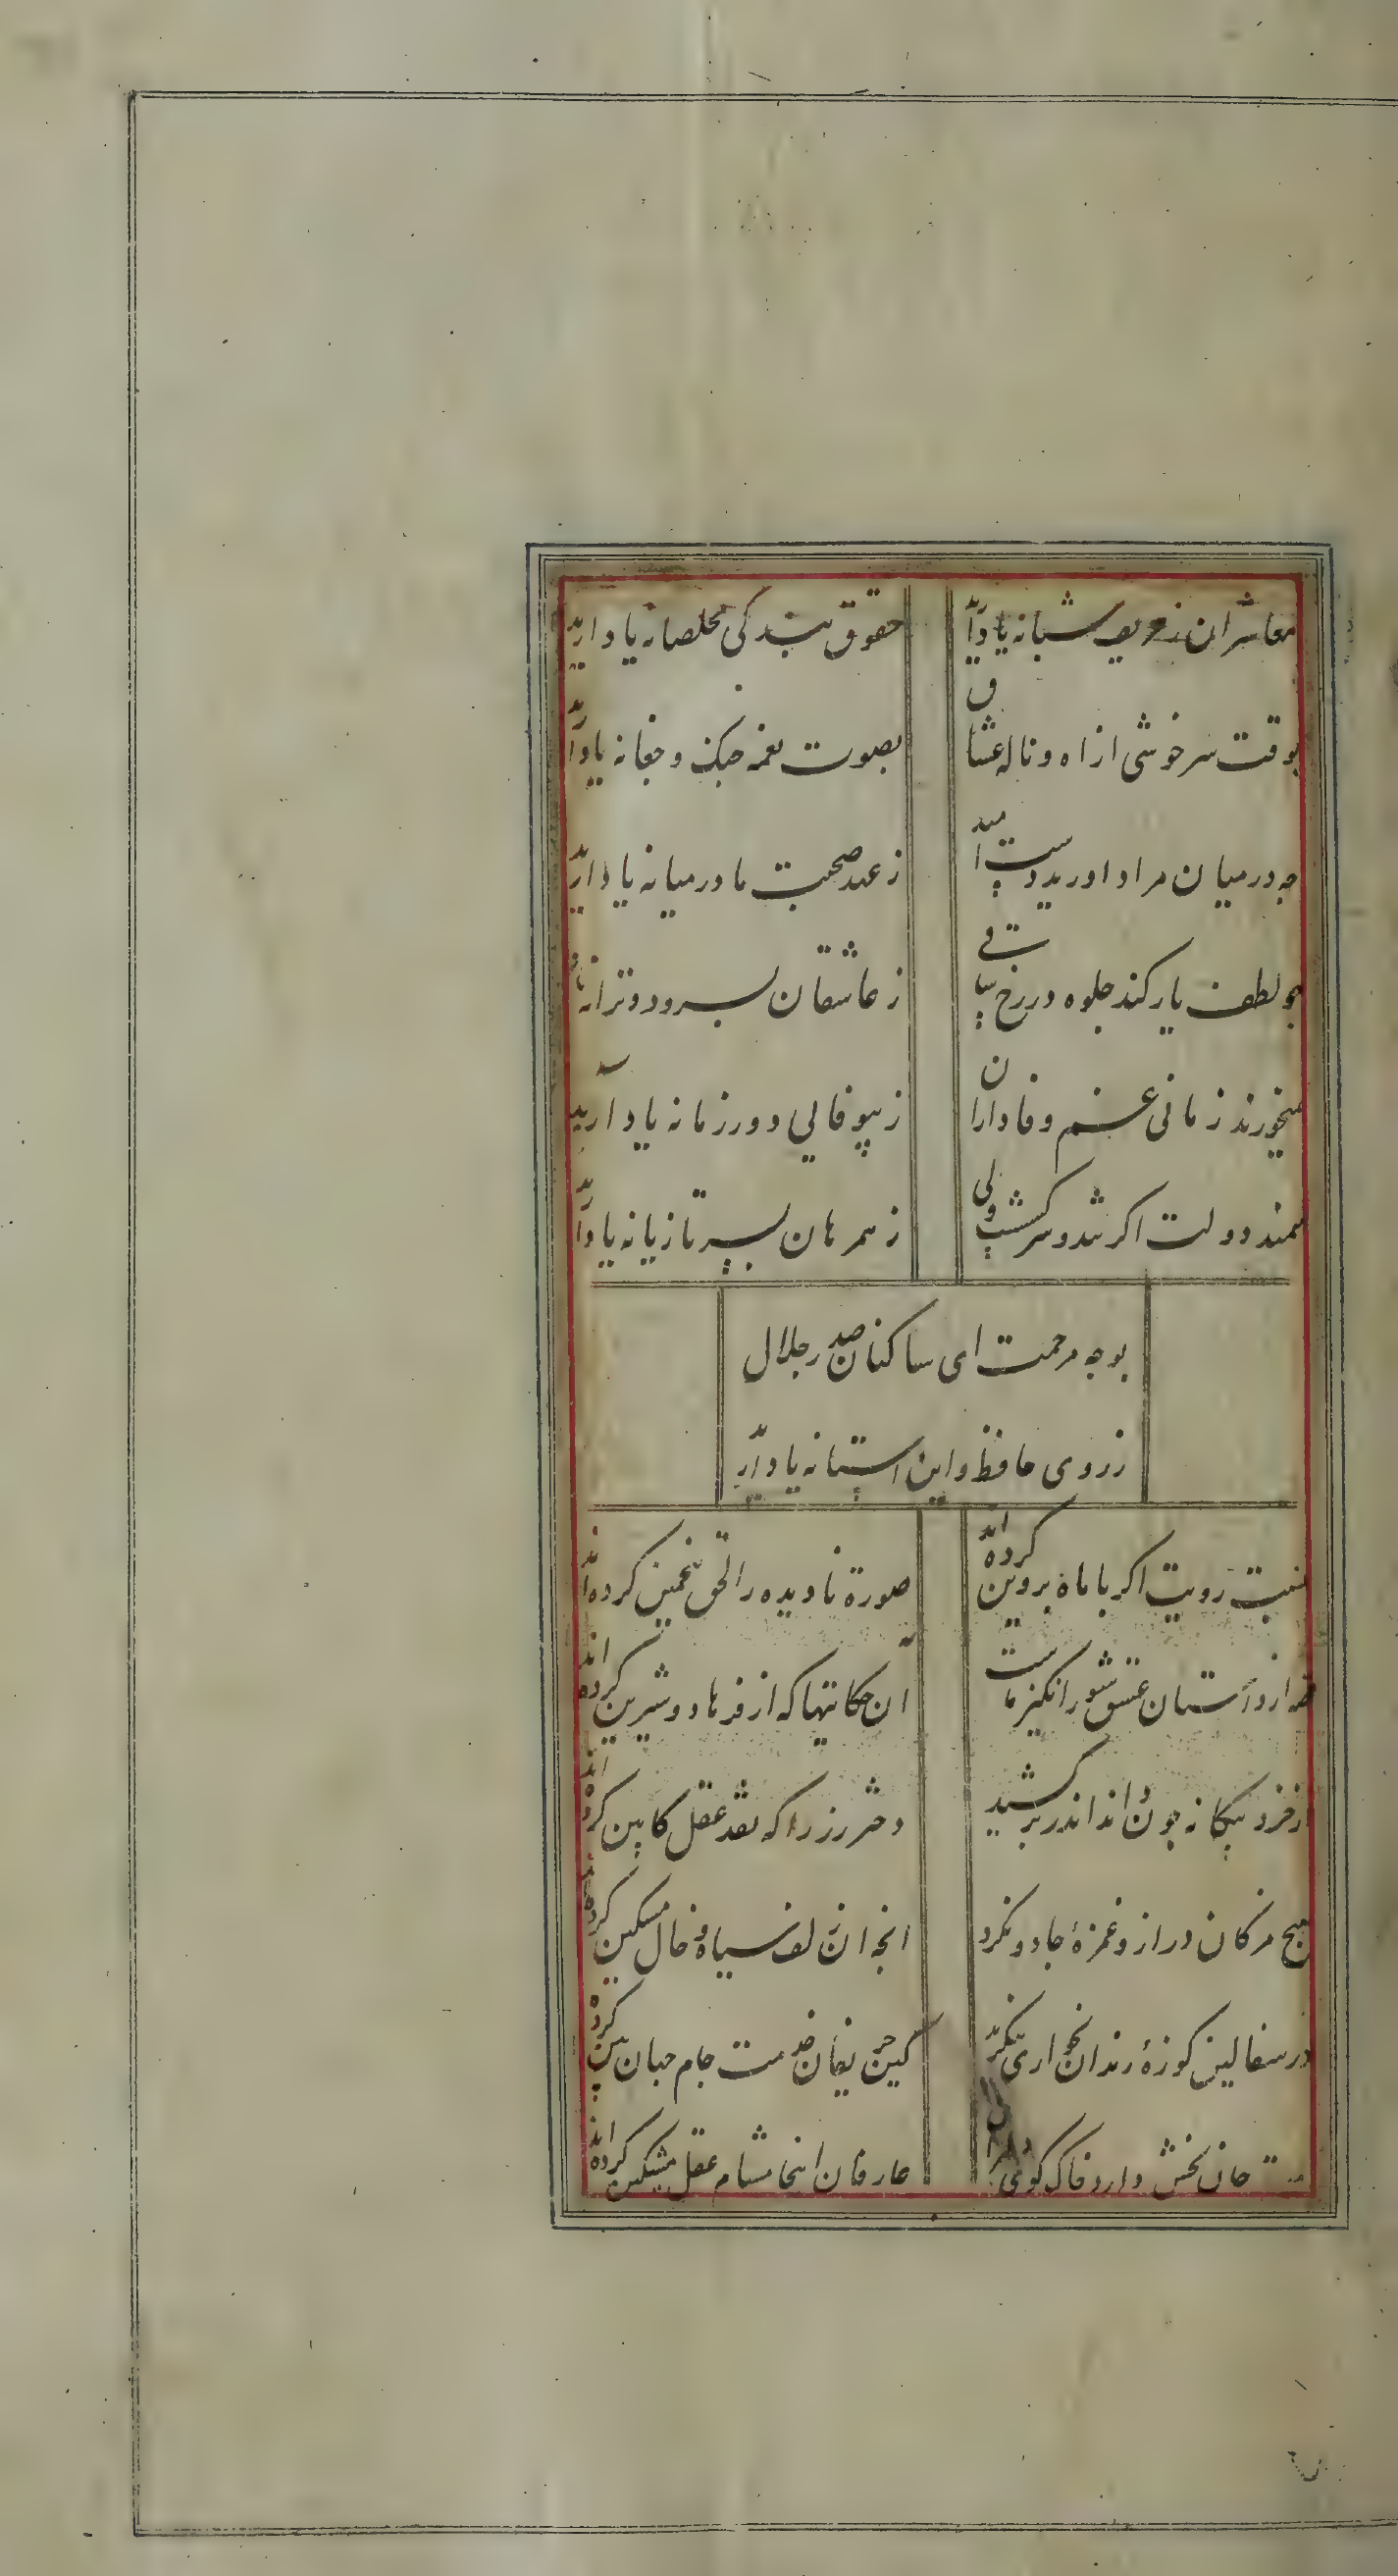 معاشران ز حریف شبانه یاد آرید
حقوق بندگی مخلصانه یاد آرید
بوقت سرخوشی از اه و ناله عشاق
بصوت نغمه چنک و چغانه یاد آرید
چه در میان مراد اورید دست امید
ز عهد صحبت ما در میانه یاد آرید
چو لطف یار کند جلوه در رخ ساقی
ز عاشقان بسرود و ترانه یاد
نمیخورند زمانی غم وفاداران
ز بیوفایی دور زمانه یاد آرید
سمند دولت اکر شد و سرکشست ولی
ز همرهان بسر تازیانه یاد آرید
بوجه مرحمت ای ساکنان صدر جلال
ز روی حافظ و این استانه یاد آرید
نسبت رویت اکر با ماه پروین کرده اند
صورة نادیده را الحق تخمین کرده اند
از داستان عشق شور انکیز ماست
ان حکایتها که از فرهاد و شیرین کرده اند
از خرد بیکانه چون اند اندر بر کشید
دختر رز را که نقد عقل کابین کرده اند
هیچ مژکان دراز و غمزهٔ جادو نکرد
انچه ان زلف سیاه و خال مسکین کرده
در سفالین کوزهٔ رندان بخواری ننکرید
کین حریفان خدمت جام جهان بین کرده
جان بخش دارد خاک کوی
عارفان انجا مشام عقل مشکین کرده اند